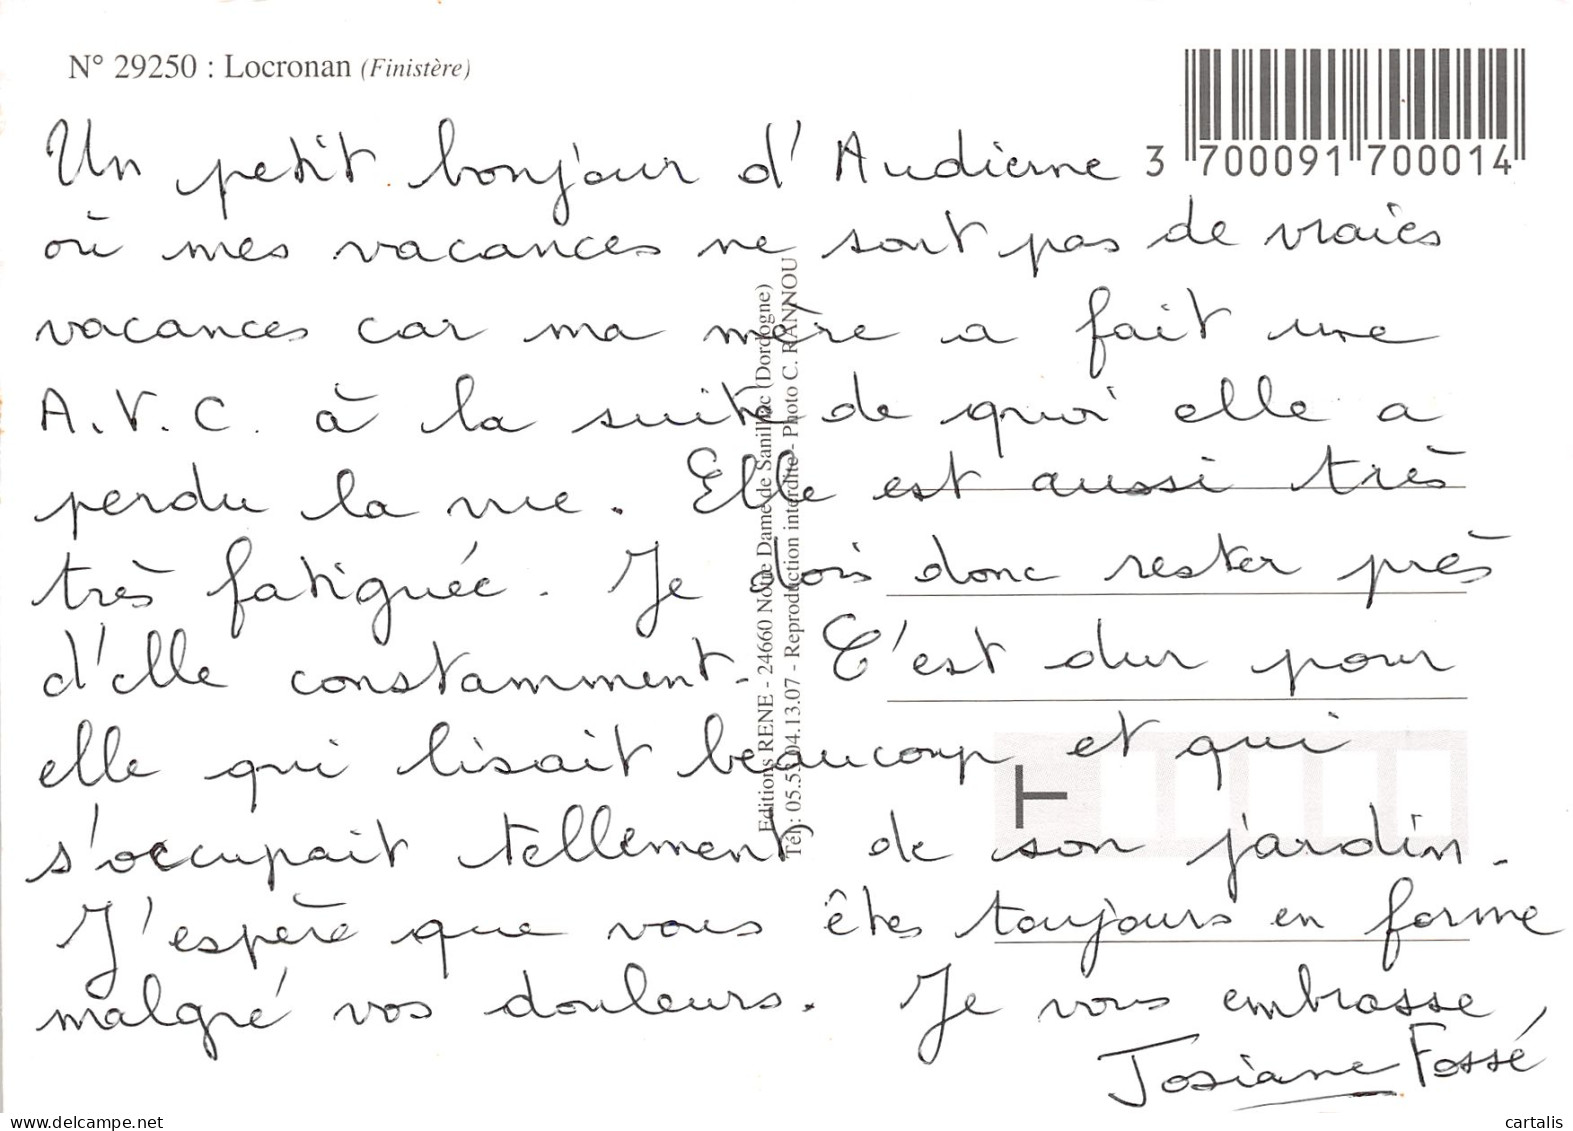 N° 29250 : Locronan (Finistère)
Un petit bonjour d'Audierne
3 700091 700014
où mes vacances ne sont pas de vraies
vacances car ma mère a fait une
A.V.C. à la suite de quoi elle a
perdu la vue. Elle est aussi très
très fatiguée. Je dois donc rester près
d'elle constamment. C'est dur pour
elle qui lisait beaucoup et qui
s'occupait tellement de son jardin.
J'espère que vous êtes toujours en forme
malgré vos douleurs. Je vous embrasse,
Josiane Fossé
Editions RENE - 24660 Notre Dame de Sanilhac (Dordogne)
Tél. : 05.53.04.13.07 - Reproduction interdite - Photo C. RANNOU
delcampe.net
cartalis